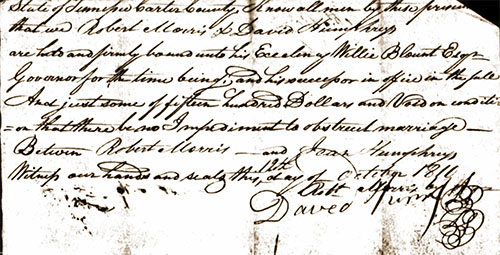 State of Tennessee Carter County, Know all men by these presents
that we Robert Morris & David Humphrys
are held and firmly bound unto his Excelency Willie Blount Esqr
Governor for the time being, and his successor in office in the full
And just some of fifteen hundred Dollars and Void on conditi
=on that there be no Impediment to obstruct marriage
Betwin Robert Morris and Humphreys
Witness our hands and seals this, 12th day of October 181
Robt Morris
David